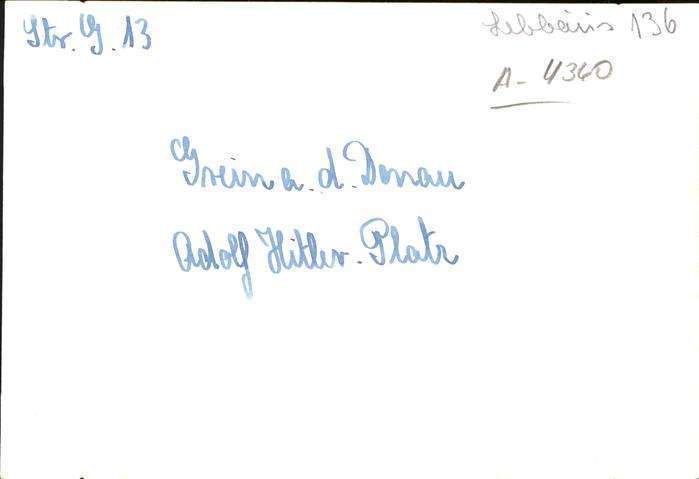 Str. G. 13
136
A - 4340
Grein a. d. Donau
Adolf Hitler-Platz